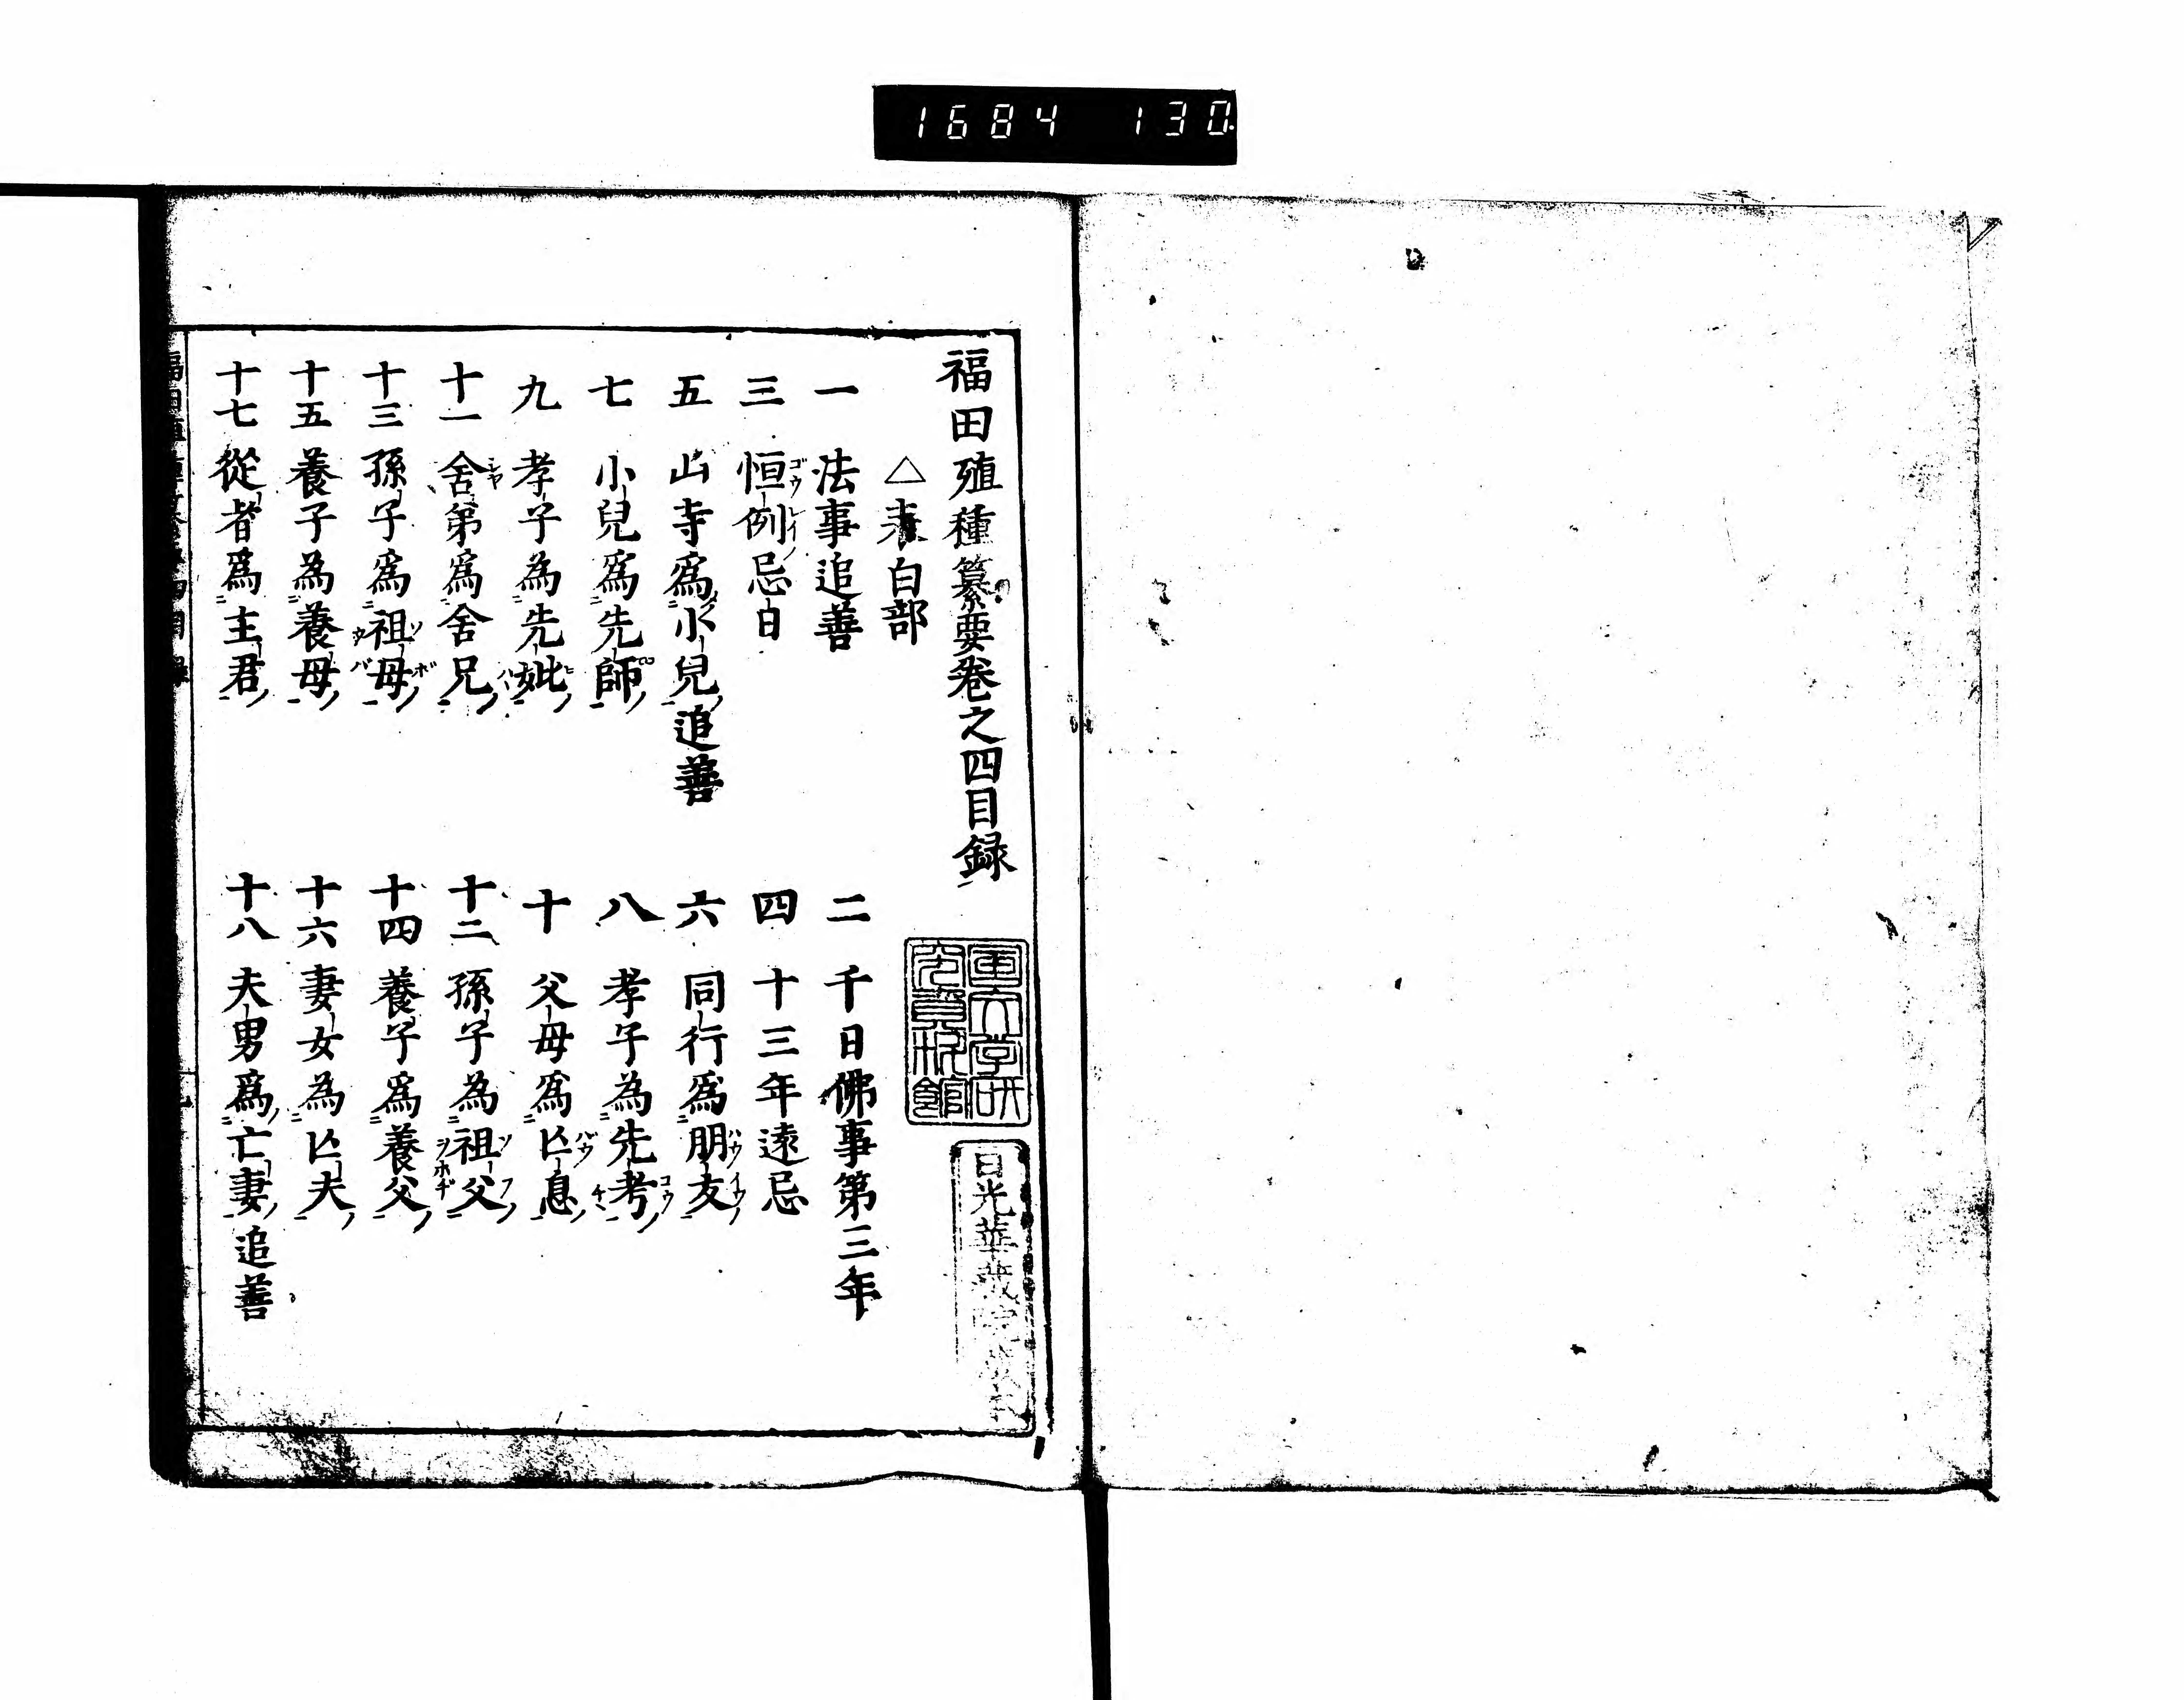 1684 130
福田殖種纂要卷之四目録
△表白部
一 法事追善
二 千日佛事第三年
三 恒例忌日
四 十三年遠忌
五 山寺爲小兒追善
六 同行爲朋友
七 小兒爲先師
八 孝子為先考
九 孝子為先妣
十 父母爲亡息
十一 舍第爲舍兄
十二 孫子為祖父
十三 孫子爲祖母
十四 養子爲養父
十五 養子為養母
十六 妻女為亡夫
十七 從者爲主君
十八 夫男爲亡妻追善
日光華蔵院